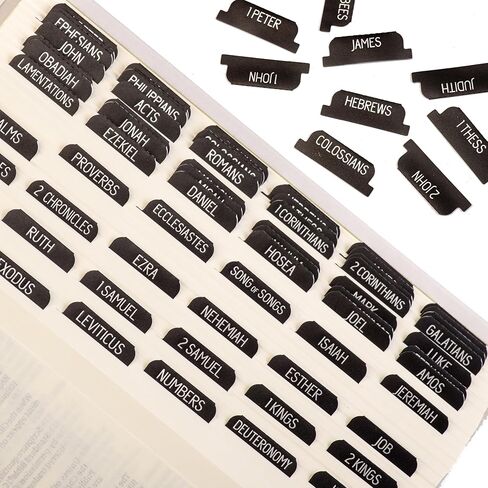 I PETER
JAMES
I JOHN
JUDITH
HEBREWS
I THESS
COLOSSIANS
2 JOHN
EPHESIANS
JOHN
OBADIAH
LAMENTATIONS
PHILIPPIANS
ACTS
JONAH
EZEKIEL
ROMANS
DANIEL
I CORINTHIANS
HOSEA
2 CORINTHIANS
MARK
JOEL
GALATIANS
LUKE
AMOS
JEREMIAH
PROVERBS
ECCLESIASTES
SONG OF SONGS
ISAIAH
2 CHRONICLES
EZRA
NEHEMIAH
ESTHER
JOB
RUTH
I SAMUEL
2 SAMUEL
I KINGS
2 KINGS
EXODUS
LEVITICUS
NUMBERS
DEUTERONOMY